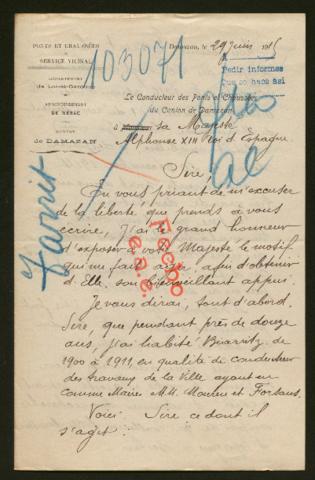 PONTS ET CHAUSSÉES
SERVICE VICINAL
DÉPARTEMENT
de Lot-et-Garonne
ARRONDISSEMENT
DE NÉRAC
CANTON
DE DAMAZAN
103071
Damazan, le 29 Juin 1915
Pedir informes
Le Conducteur des Ponts et Chaussées
du Canton de Damazan
à sa Majesté
Alphonse XIII Roi d'Espagne
Sire,
En vous priant de m'excuser
de la liberté que prends à vous
écrire, j'ai le grand honneur
d'exposer à votre Majesté le motif
qui me fait agir, afin d'obtenir
d'Elle, son bienveillant appui.
Je vous dirai, tout d'abord,
Sire, que pendant près de douze
ans, j'ai habité Biarritz, de
1900 à 1911, en qualité de conducteur
des travaux de la Ville ayant eu
comme Maires M.M. Moureu et Forsans.
Voici, Sire ce dont il
s'agit :
Fecho